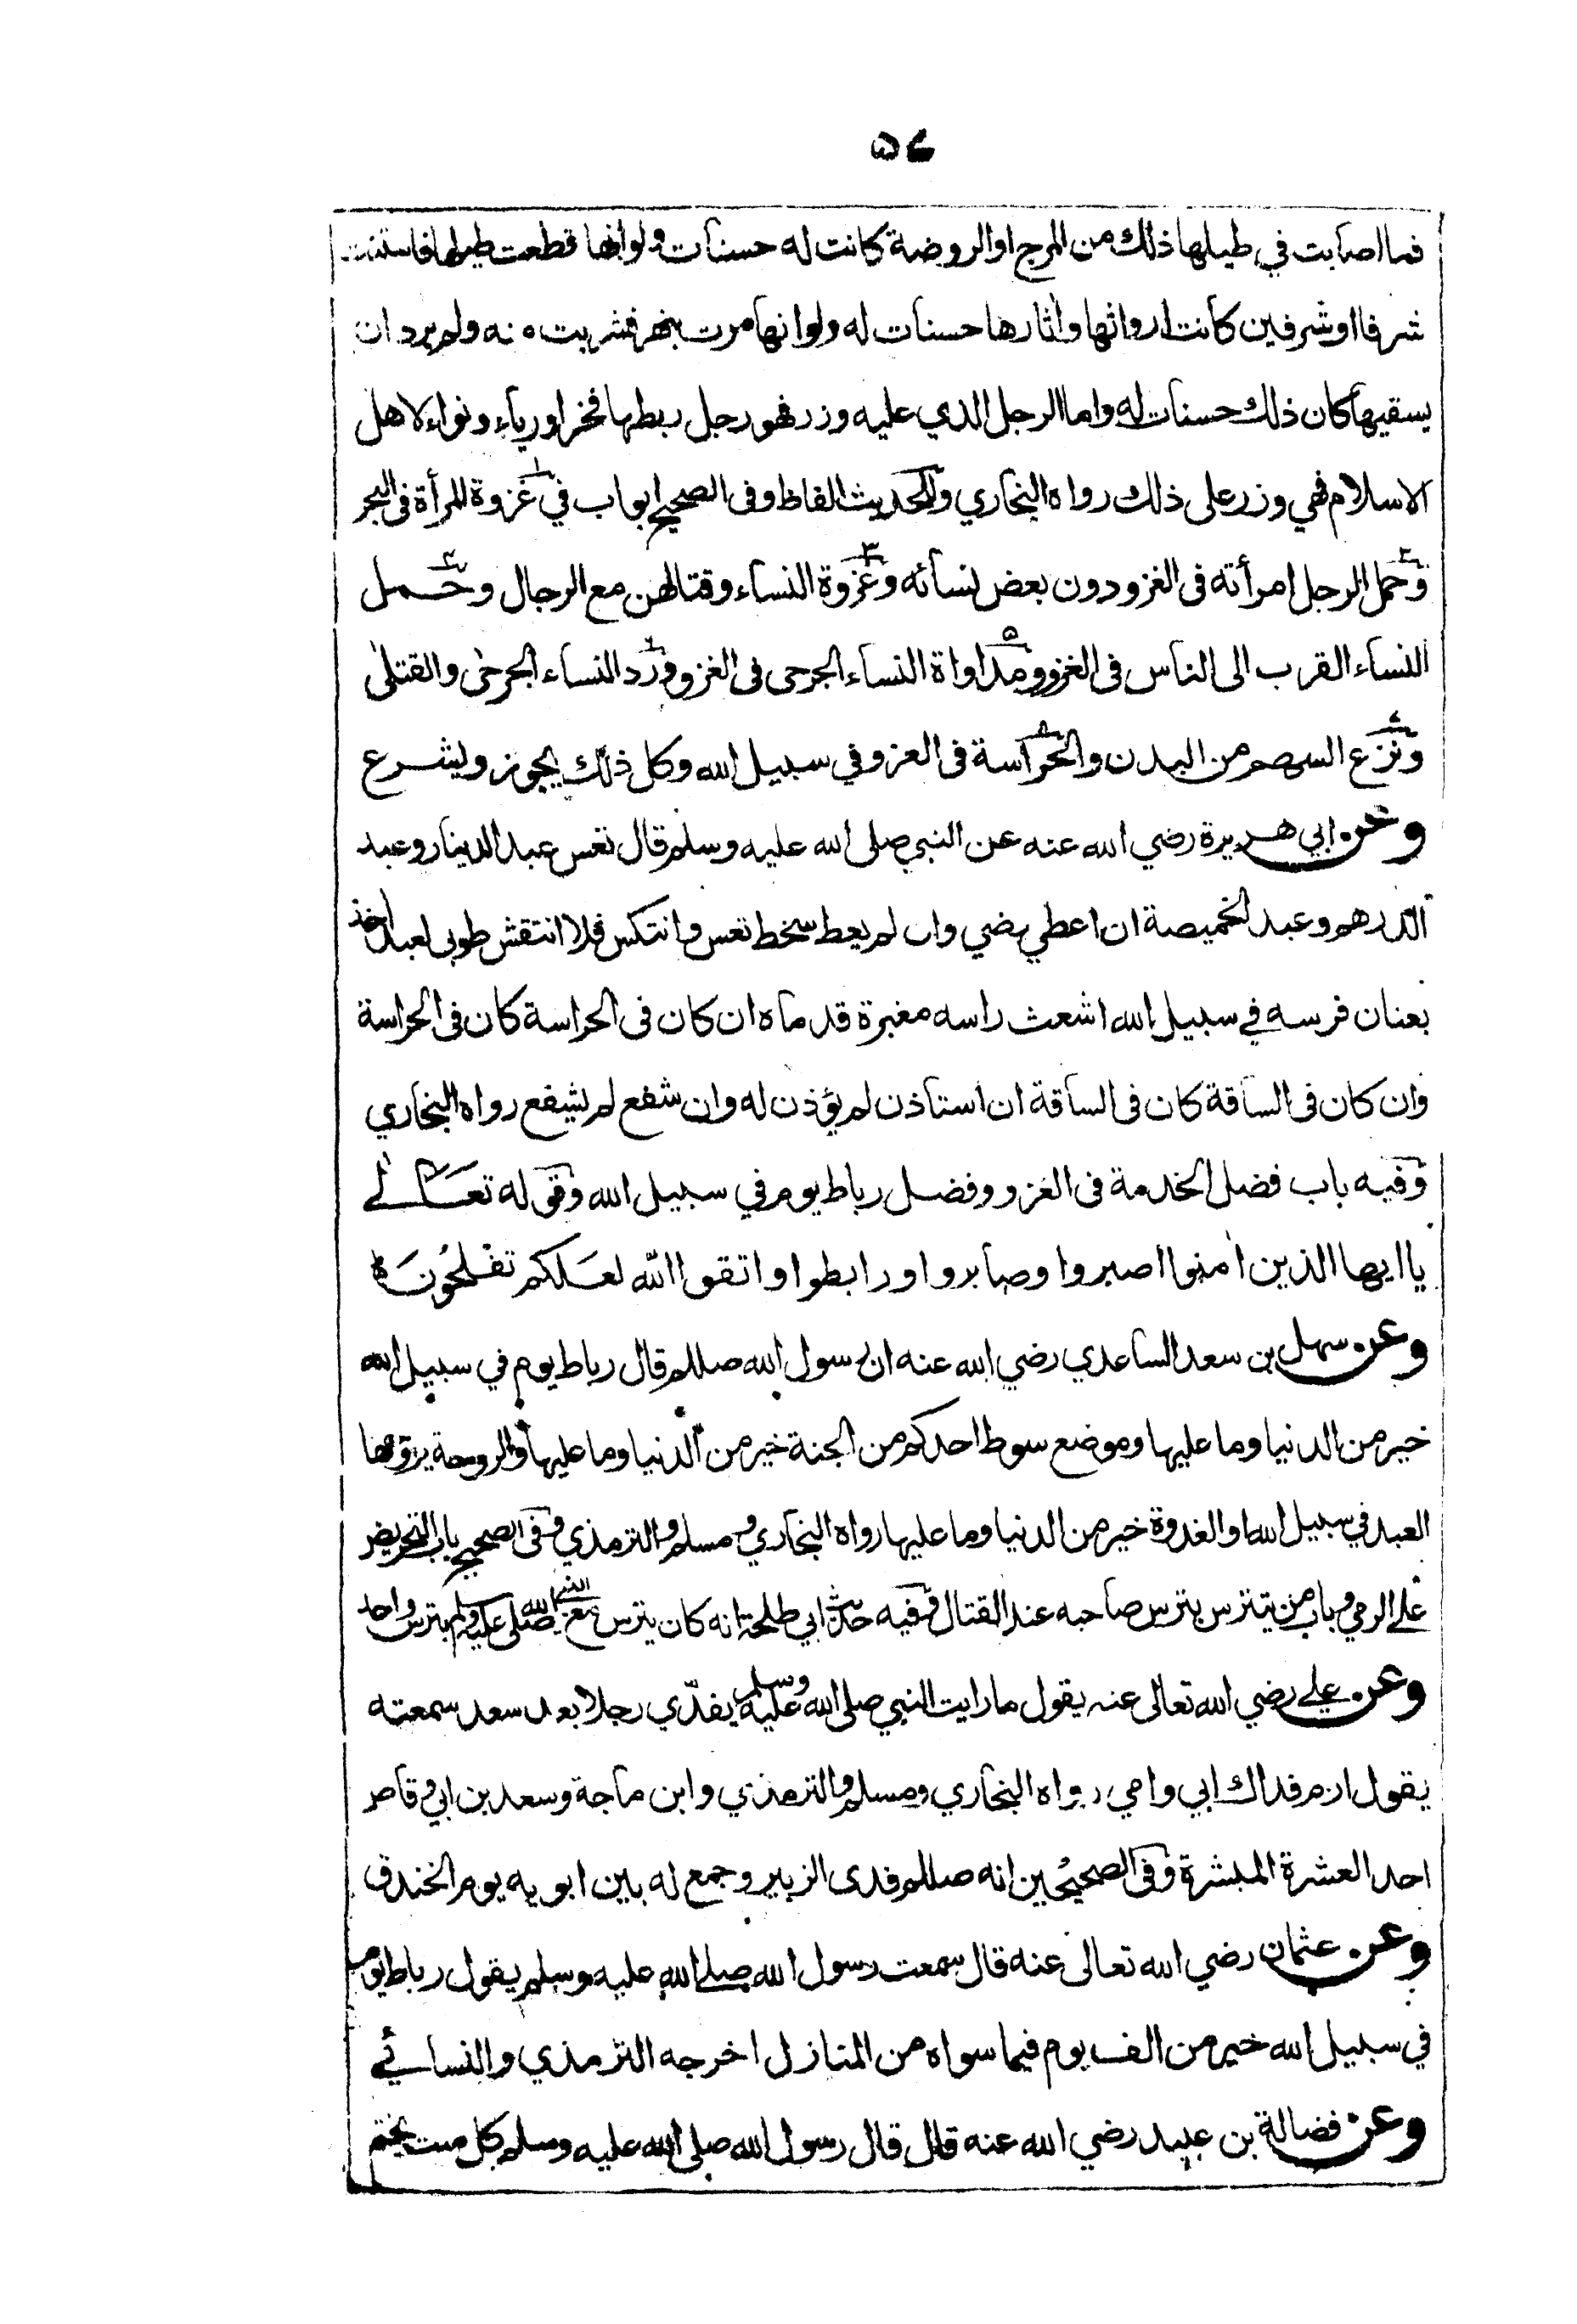 ۵۷
فما اصابت في طيلها ذلك من المرج او الروضة كانت له حسنات ولو انها قطعت طيلها فاستنت
شرفا او شرفين كانت ارواثها واٰثارها حسنات له ولو انها مرت بنهر فشربت منه ولم يرد ان
يسقيها كان ذلك حسنات له واما الرجل الذي عليه وزر فهو رجل ربطها فخرا ورياء ونواء لاهل
الاسلام فهي وزر على ذلك رواه البخاري وللحديث الفاظ وفى الصحيح ابواب في غزوة المرأة فى البحر
وحمل الرجل امرأته فى الغزو دون بعض نسائه وغزوة النساء وقتالهن مع الرجال وحمل
النساء القرب الى الناس فى الغزو ومداواة النساء الجرحى فى الغزو ورد النساء الجرحىٰ والقتلىٰ
ونزع السهم من البدن والحراسة فى الغزو في سبيل الله وكل ذلك يجوز ويشرع
وعن ابي هريرة رضي الله عنه عن النبي صلى الله عليه وسلم قال تعس عبد الدينار وعبد
الدرهم وعبد الخميصة ان اعطي رضي وان لم يعط سخط تعس وانتكس فلا انتقش طوبى لعبد اخذ
بعنان فرسه في سبيل الله اشعث راسه مغبرة قدماه ان كان فى الحراسة كان فى الحراسة
وان كان فى الساقة كان فى الساقة ان استاذن لم يؤذن له وان شفع لم يشفع رواه البخاري
وفيه باب فضل الخدمة فى الغزو وفضل رباط يوم في سبيل الله وقوله تعالے
يا ايها الذين اٰمنوا اصبروا وصابروا ورابطوا واتقوا الله لعلكم تفلحون
وعن سهل بن سعد الساعدي رضي الله عنه ان رسول الله صللم قال رباط يوم في سبيل الله
خير من الدنيا وما عليها وموضع سوط احدكم من الجنة خير من الدنيا وما عليها والروحة يروحها
العبد في سبيل الله او الغدوة خير من الدنيا وما عليها رواه البخاري ومسلم والترمذي وفى الصحيح باب التحريض
علے الرمي وباب من يتترس بترس صاحبه عند القتال وفيه حديث ابي طلحة انه كان يترس مع النبي صلى الله عليه وسلم بترس واحد
وعن علے رضي الله تعالى عنه يقول ما رايت النبي صلى الله عليه وسلم يفدّي رجلا بعد سعد سمعته
يقول ارم فداك ابي وامي رواه البخاري ومسلم والترمذي وابن ماجة وسعد بن ابي وقاص
احد العشرة المبشرة وفى الصحيحين انه صللم فدى الزبير وجمع له بين ابويه يوم الخندق
وعن عثمان رضي الله تعالى عنه قال سمعت رسول الله صلے الله عليه وسلم يقول رباط يوم
في سبيل الله خير من الف يوم فيما سواه من المنازل اخرجه الترمذي والنسائي
وعن فضالة بن عبيد رضي الله عنه قال قال رسول الله صلى الله عليه وسلم كل ميت يختم